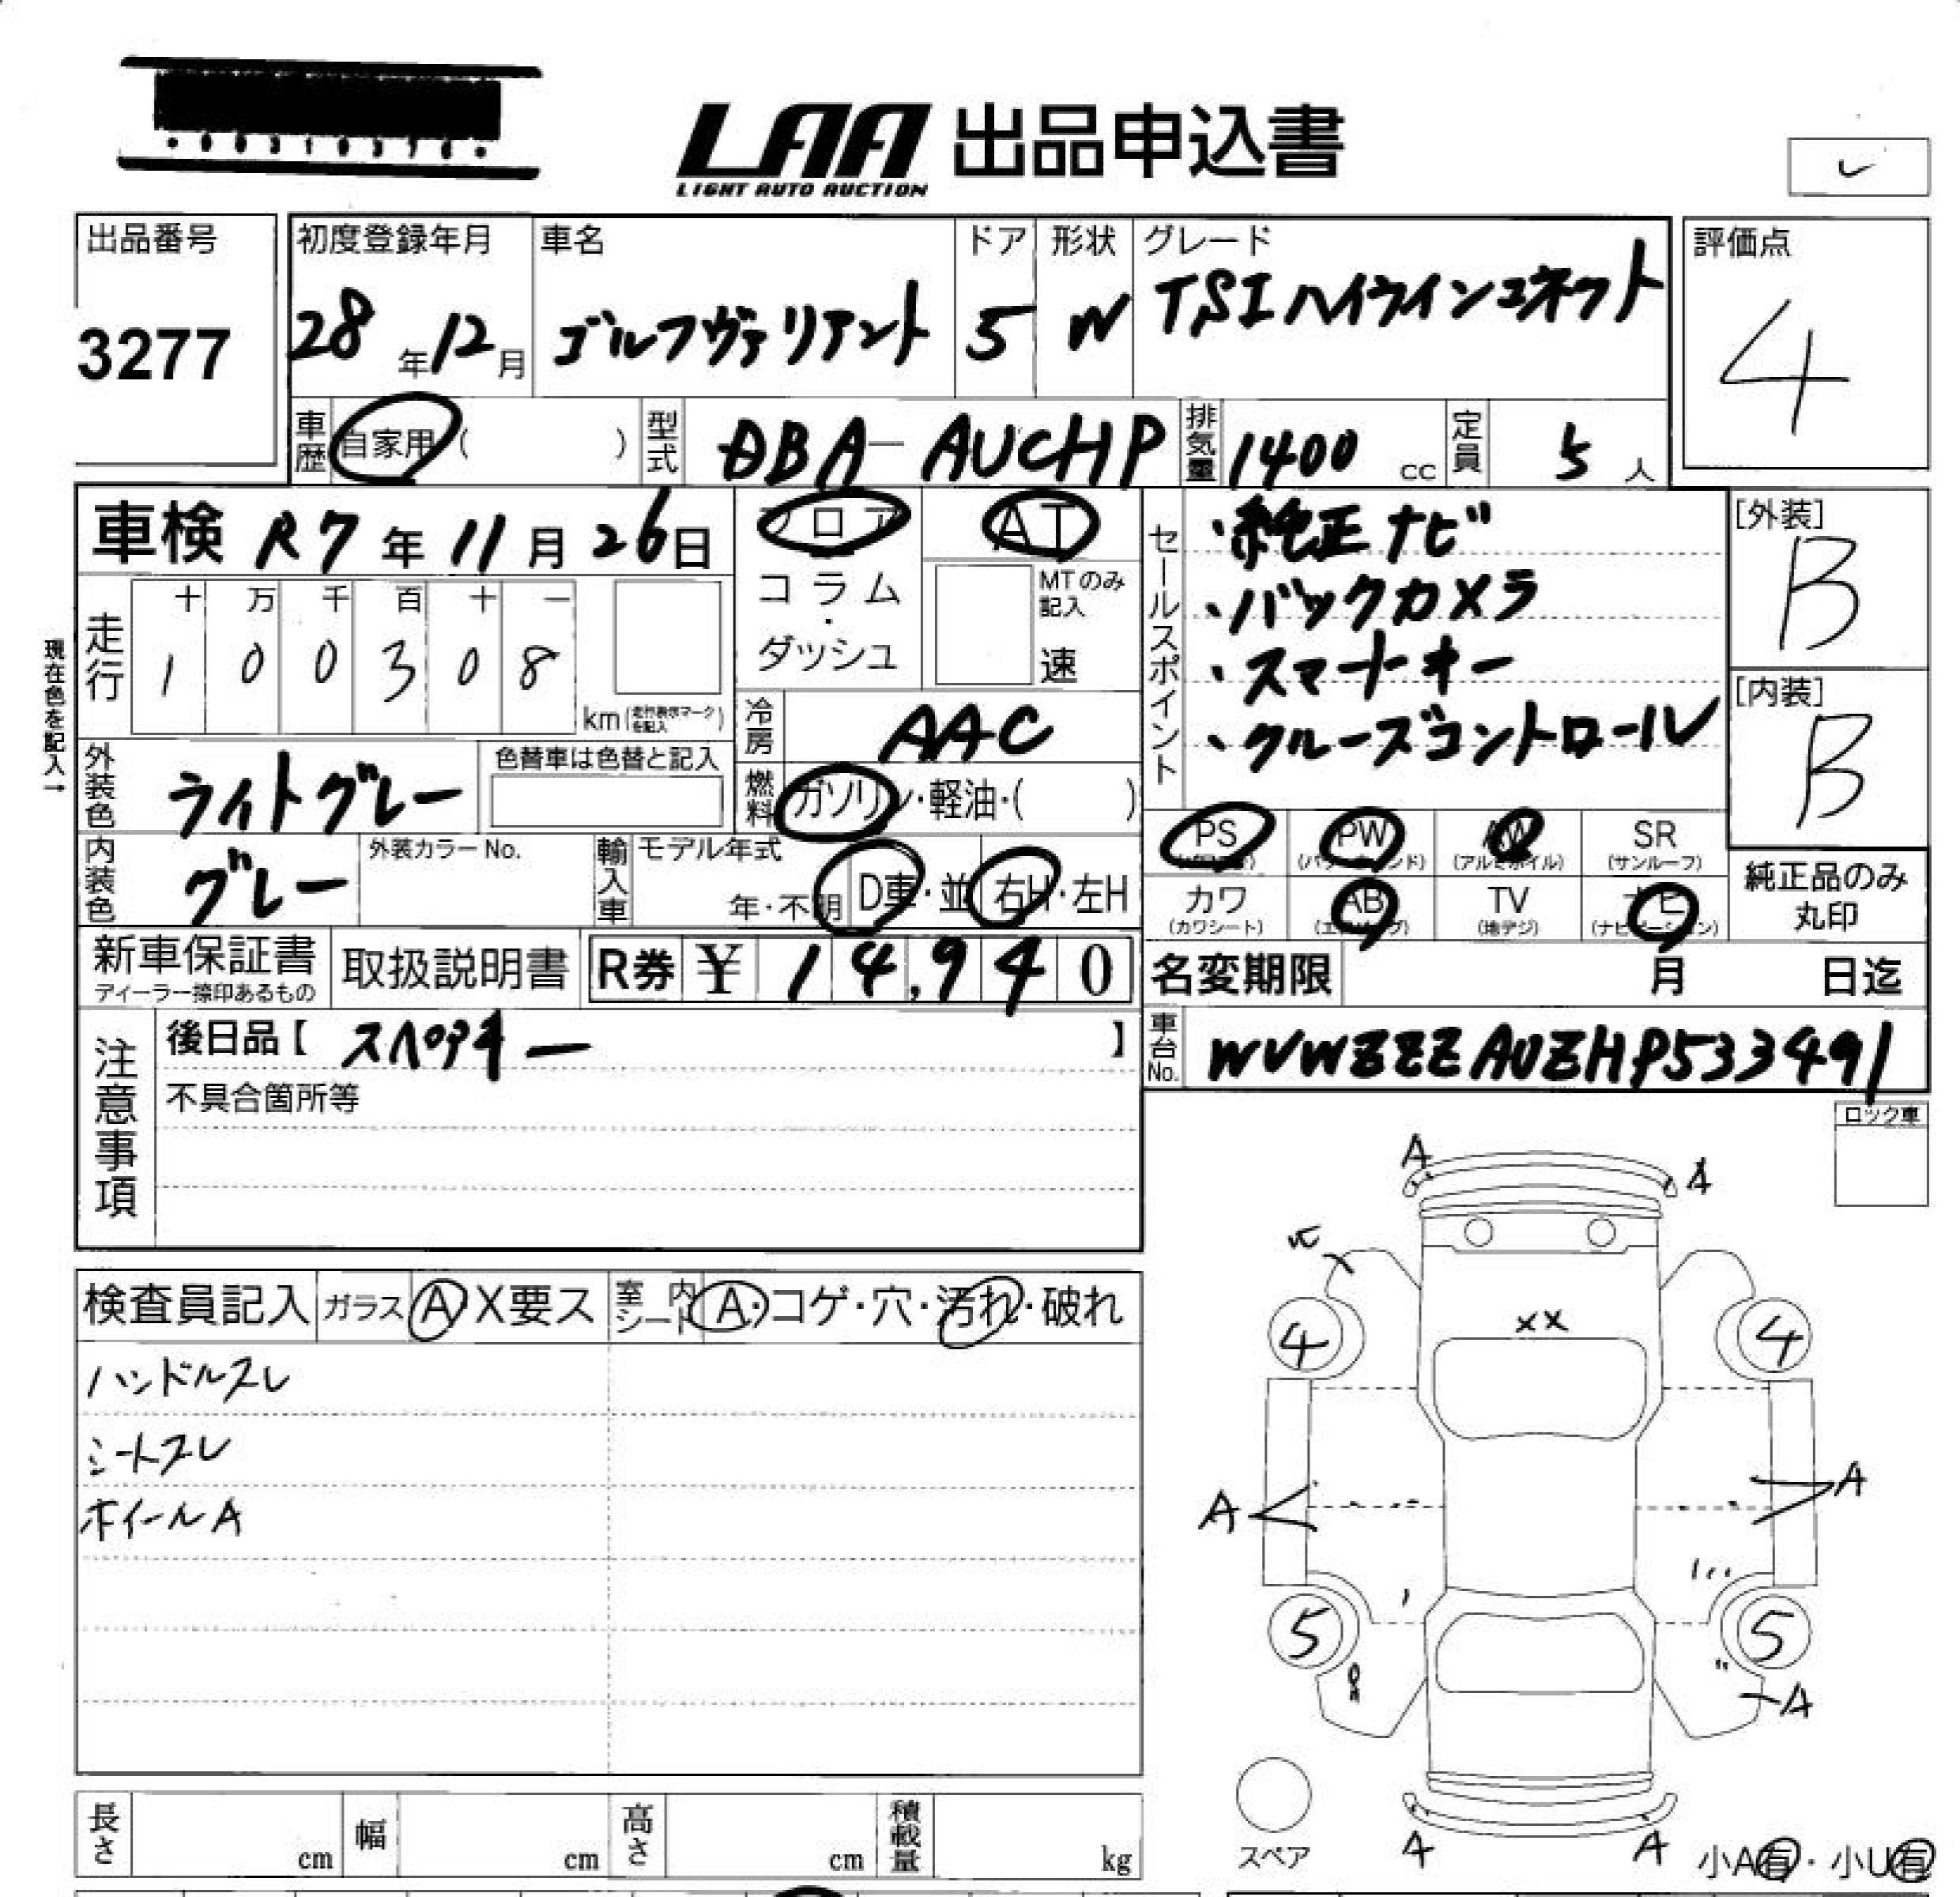 LAA 出品申込書
LIGHT AUTO AUCTION
出品番号
3277
初度登録年月
28年12月
車名
ゴルフヴァリアント
ドア
5
形状
W
グレード
TSIハイラインコネクト
評価点
4
車歴 自家用 ( )
型式 DBA-AUCHP
排気量 1400 cc
定員 5 人
車検 R7年11月26日
フロア
コラム
・
ダッシュ
AT
MTのみ
記入
速
セールスポイント
・純正ナビ
・バックカメラ
・スマートキー
・クルーズコントロール
[外装]
B
[内装]
B
現在色を記入→
走行
十 万 千 百 十 一
1 0 0 3 0 8
km (走行表示マークを記入)
冷房 AAC
燃料 ガソリン・軽油・( )
外装色 ライトグレー
色替車は色替と記入
内装色 グレー
外装カラーNo.
輸入車
モデル年式
年・不明
D車・並
右H・左H
PS
PW
(パワーウィンド)
AW
(アルミホイル)
SR
(サンルーフ)
カワ
(カワシート)
AB
(エアバッグ)
TV
(地デジ)
ナビ
(ナビゲーション)
純正品のみ
丸印
新車保証書
ディーラー捺印あるもの
取扱説明書
R券 ¥ 14,940
名変期限 月 日迄
注意事項
後日品【 スペアキー 】
不具合箇所等
車台No. WVWZZZAUZHP533491
ロック車
検査員記入
ガラス A X要ス
室内シート A・コゲ・穴・汚れ・破れ
ハンドルスレ
シートスレ
ホイールA
A
A
XX
4
4
A
A
5
5
A
A
A
スペア
小A有・小U有
長さ cm
幅 cm
高さ cm
積載量 kg